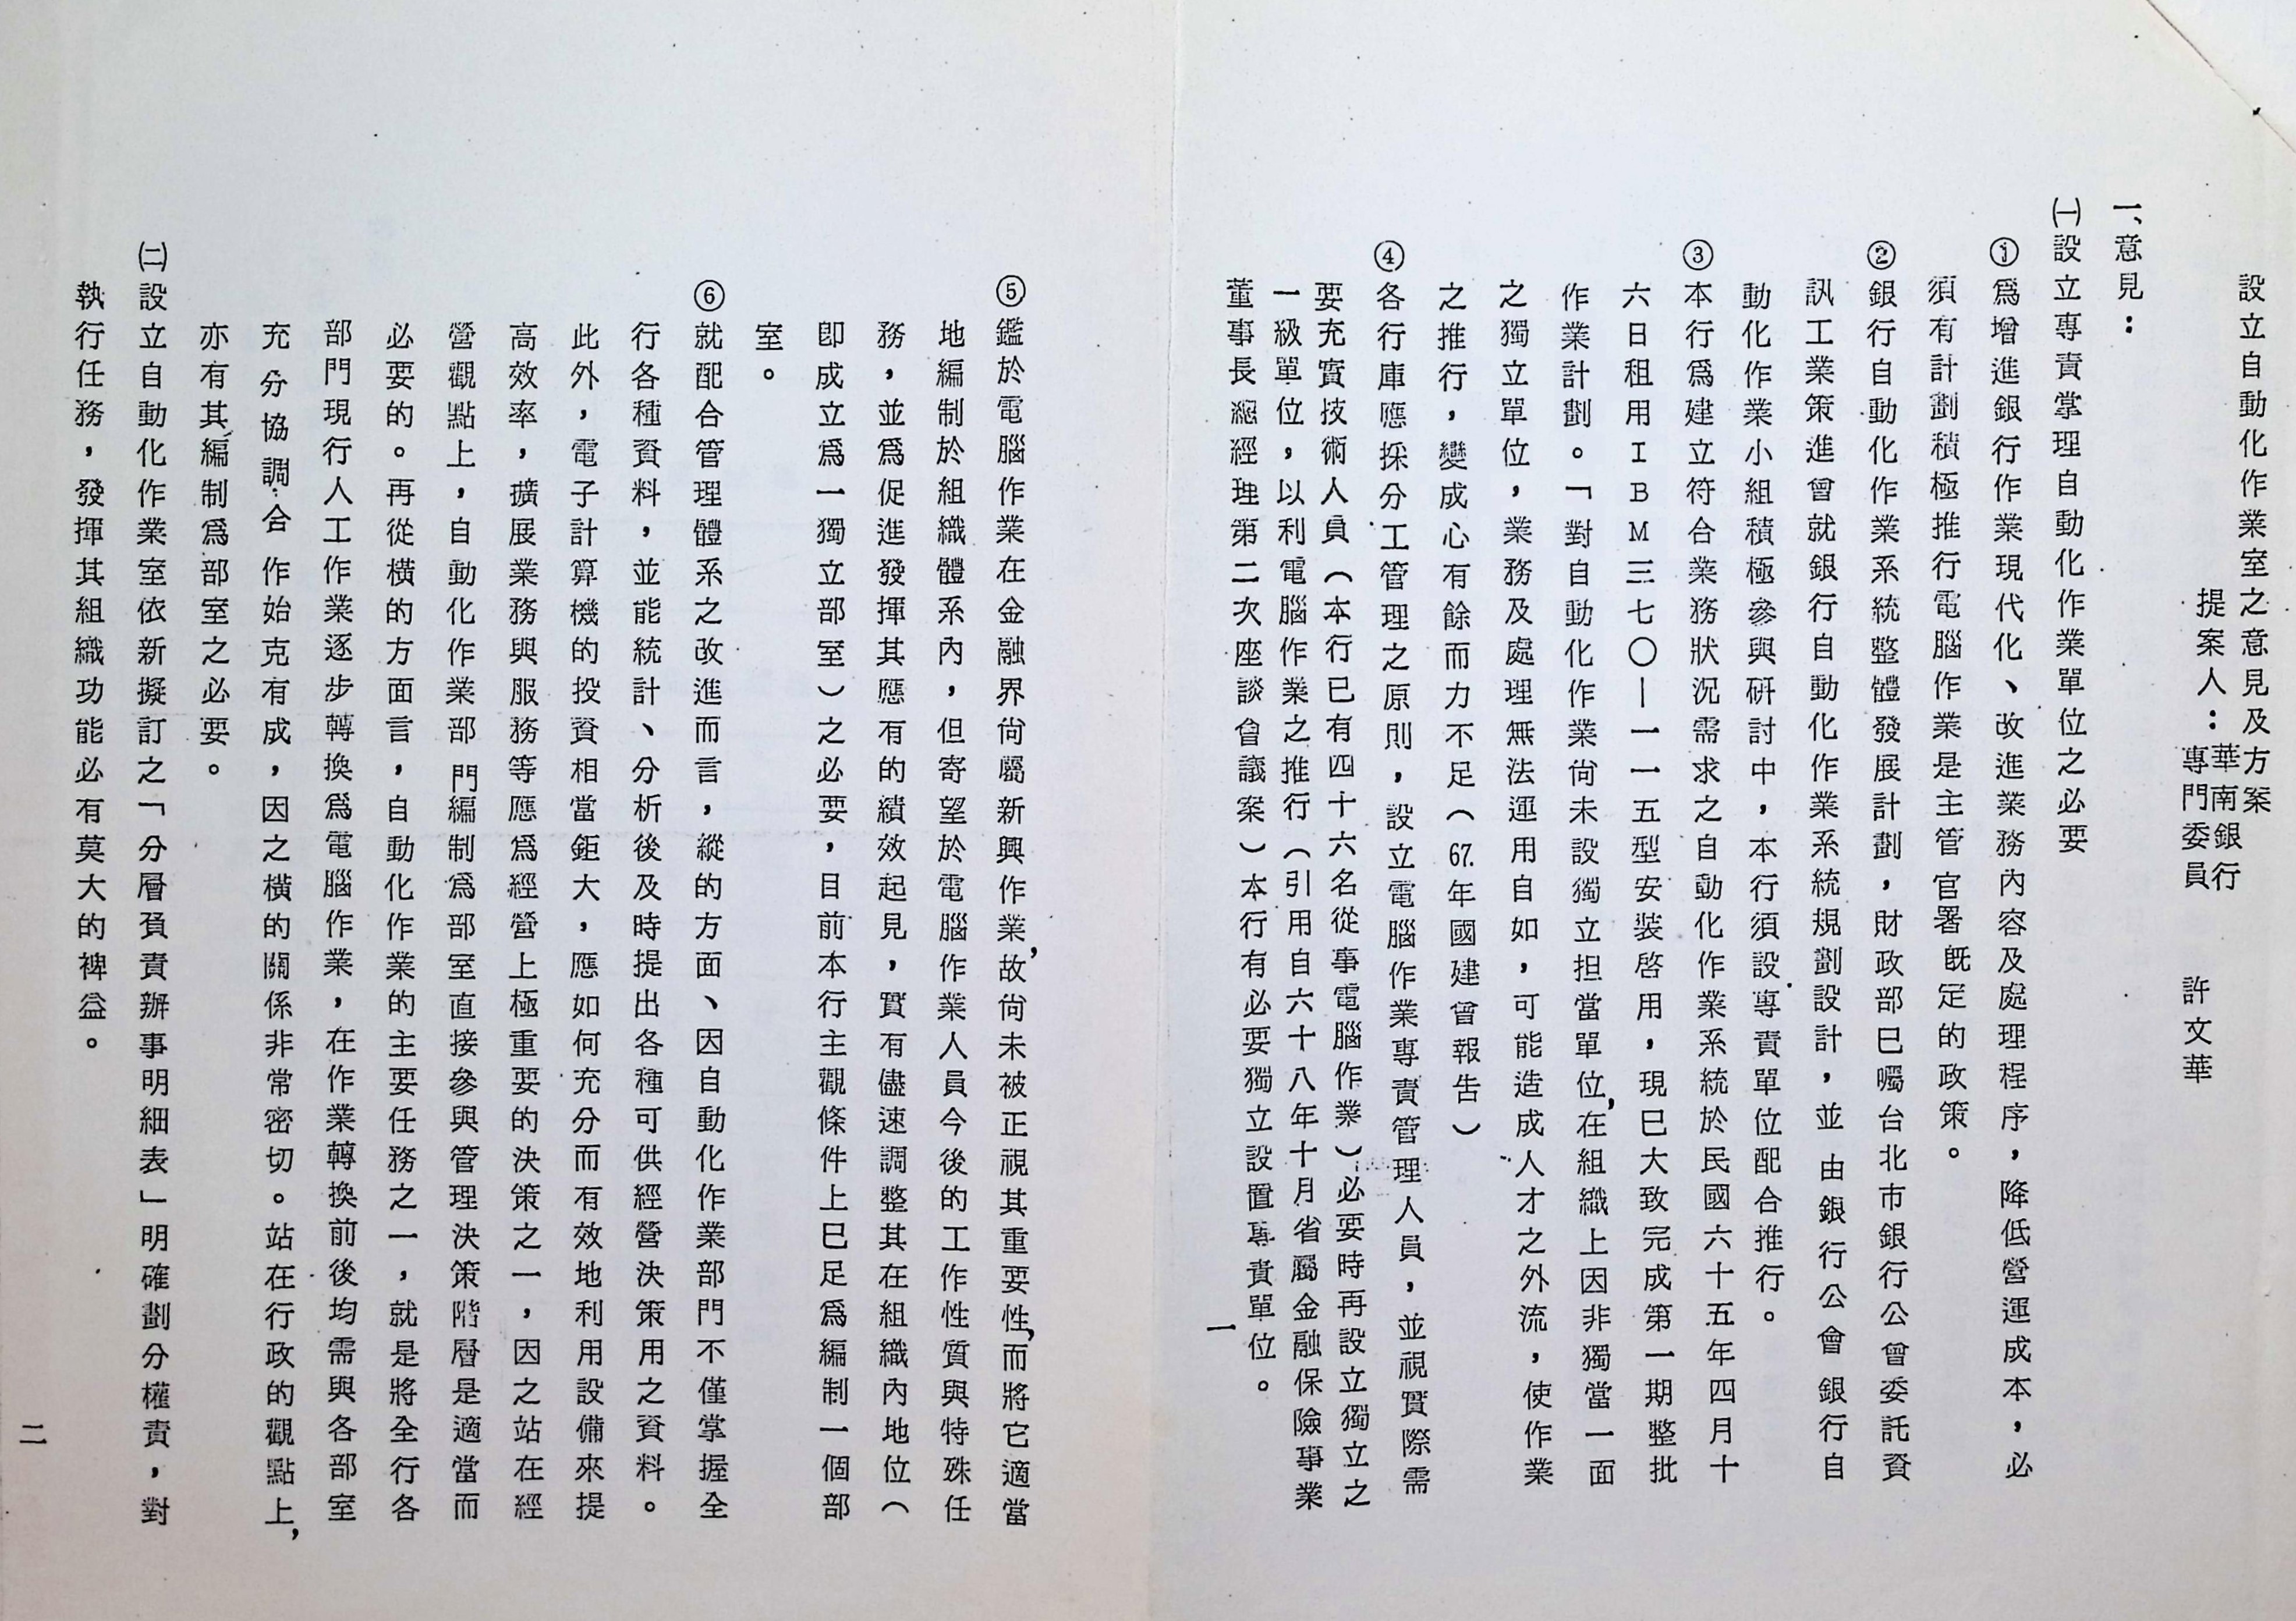 設立自動化作業室之意見及方案
提案人：華南銀行
專門委員　許文華
一、意見：
㈠設立專責掌理自動化作業單位之必要
①為增進銀行作業現代化、改進業務內容及處理程序，降低營運成本，必
須有計劃積極推行電腦作業是主管官署既定的政策。
②銀行自動化作業系統整體發展計劃，財政部已囑台北市銀行公會委託資
訊工業策進會就銀行自動化作業系統規劃設計，並由銀行公會銀行自
動化作業小組積極參與研討中，本行須設專責單位配合推行。
③本行為建立符合業務狀況需求之自動化作業系統於民國六十五年四月十
六日租用IBM三七〇—一一五型安裝啓用，現已大致完成第一期整批
作業計劃。「對自動化作業尚未設獨立担當單位，在組織上因非獨當一面
之獨立單位，業務及處理無法運用自如，可能造成人才之外流，使作業
之推行，變成心有餘而力不足（67.年國建會報告）
④各行庫應採分工管理之原則，設立電腦作業專責管理人員，並視實際需
要充實技術人員（本行已有四十六名從事電腦作業）必要時再設立獨立之
一級單位，以利電腦作業之推行（引用自六十八年十月省屬金融保險事業
董事長總經理第二次座談會議案）本行有必要獨立設置專責單位。
一
⑤鑑於電腦作業在金融界尚屬新興作業，故尚未被正視其重要性，而將它適當
地編制於組織體系內，但寄望於電腦作業人員今後的工作性質與特殊任
務，並為促進發揮其應有的績效起見，實有儘速調整其在組織內地位（
卽成立為一獨立部室）之必要，目前本行主觀條件上已足為編制一個部
室。
⑥就配合管理體系之改進而言，縱的方面、因自動化作業部門不僅掌握全
行各種資料，並能統計、分析後及時提出各種可供經營決策用之資料。
此外，電子計算機的投資相當鉅大，應如何充分而有效地利用設備來提
高效率，擴展業務與服務等應為經營上極重要的決策之一，因之站在經
營觀點上，自動化作業部門編制為部室直接參與管理決策階層是適當而
必要的。再從橫的方面言，自動化作業的主要任務之一，就是將全行各
部門現行人工作業逐步轉換為電腦作業，在作業轉換前後均需與各部室
充分協調合作始克有成，因之橫的關係非常密切。站在行政的觀點上，
亦有其編制為部室之必要。
㈡設立自動化作業室依新擬訂之「分層負責辦事明細表」明確劃分權責，對
執行任務，發揮其組織功能必有莫大的裨益。
二